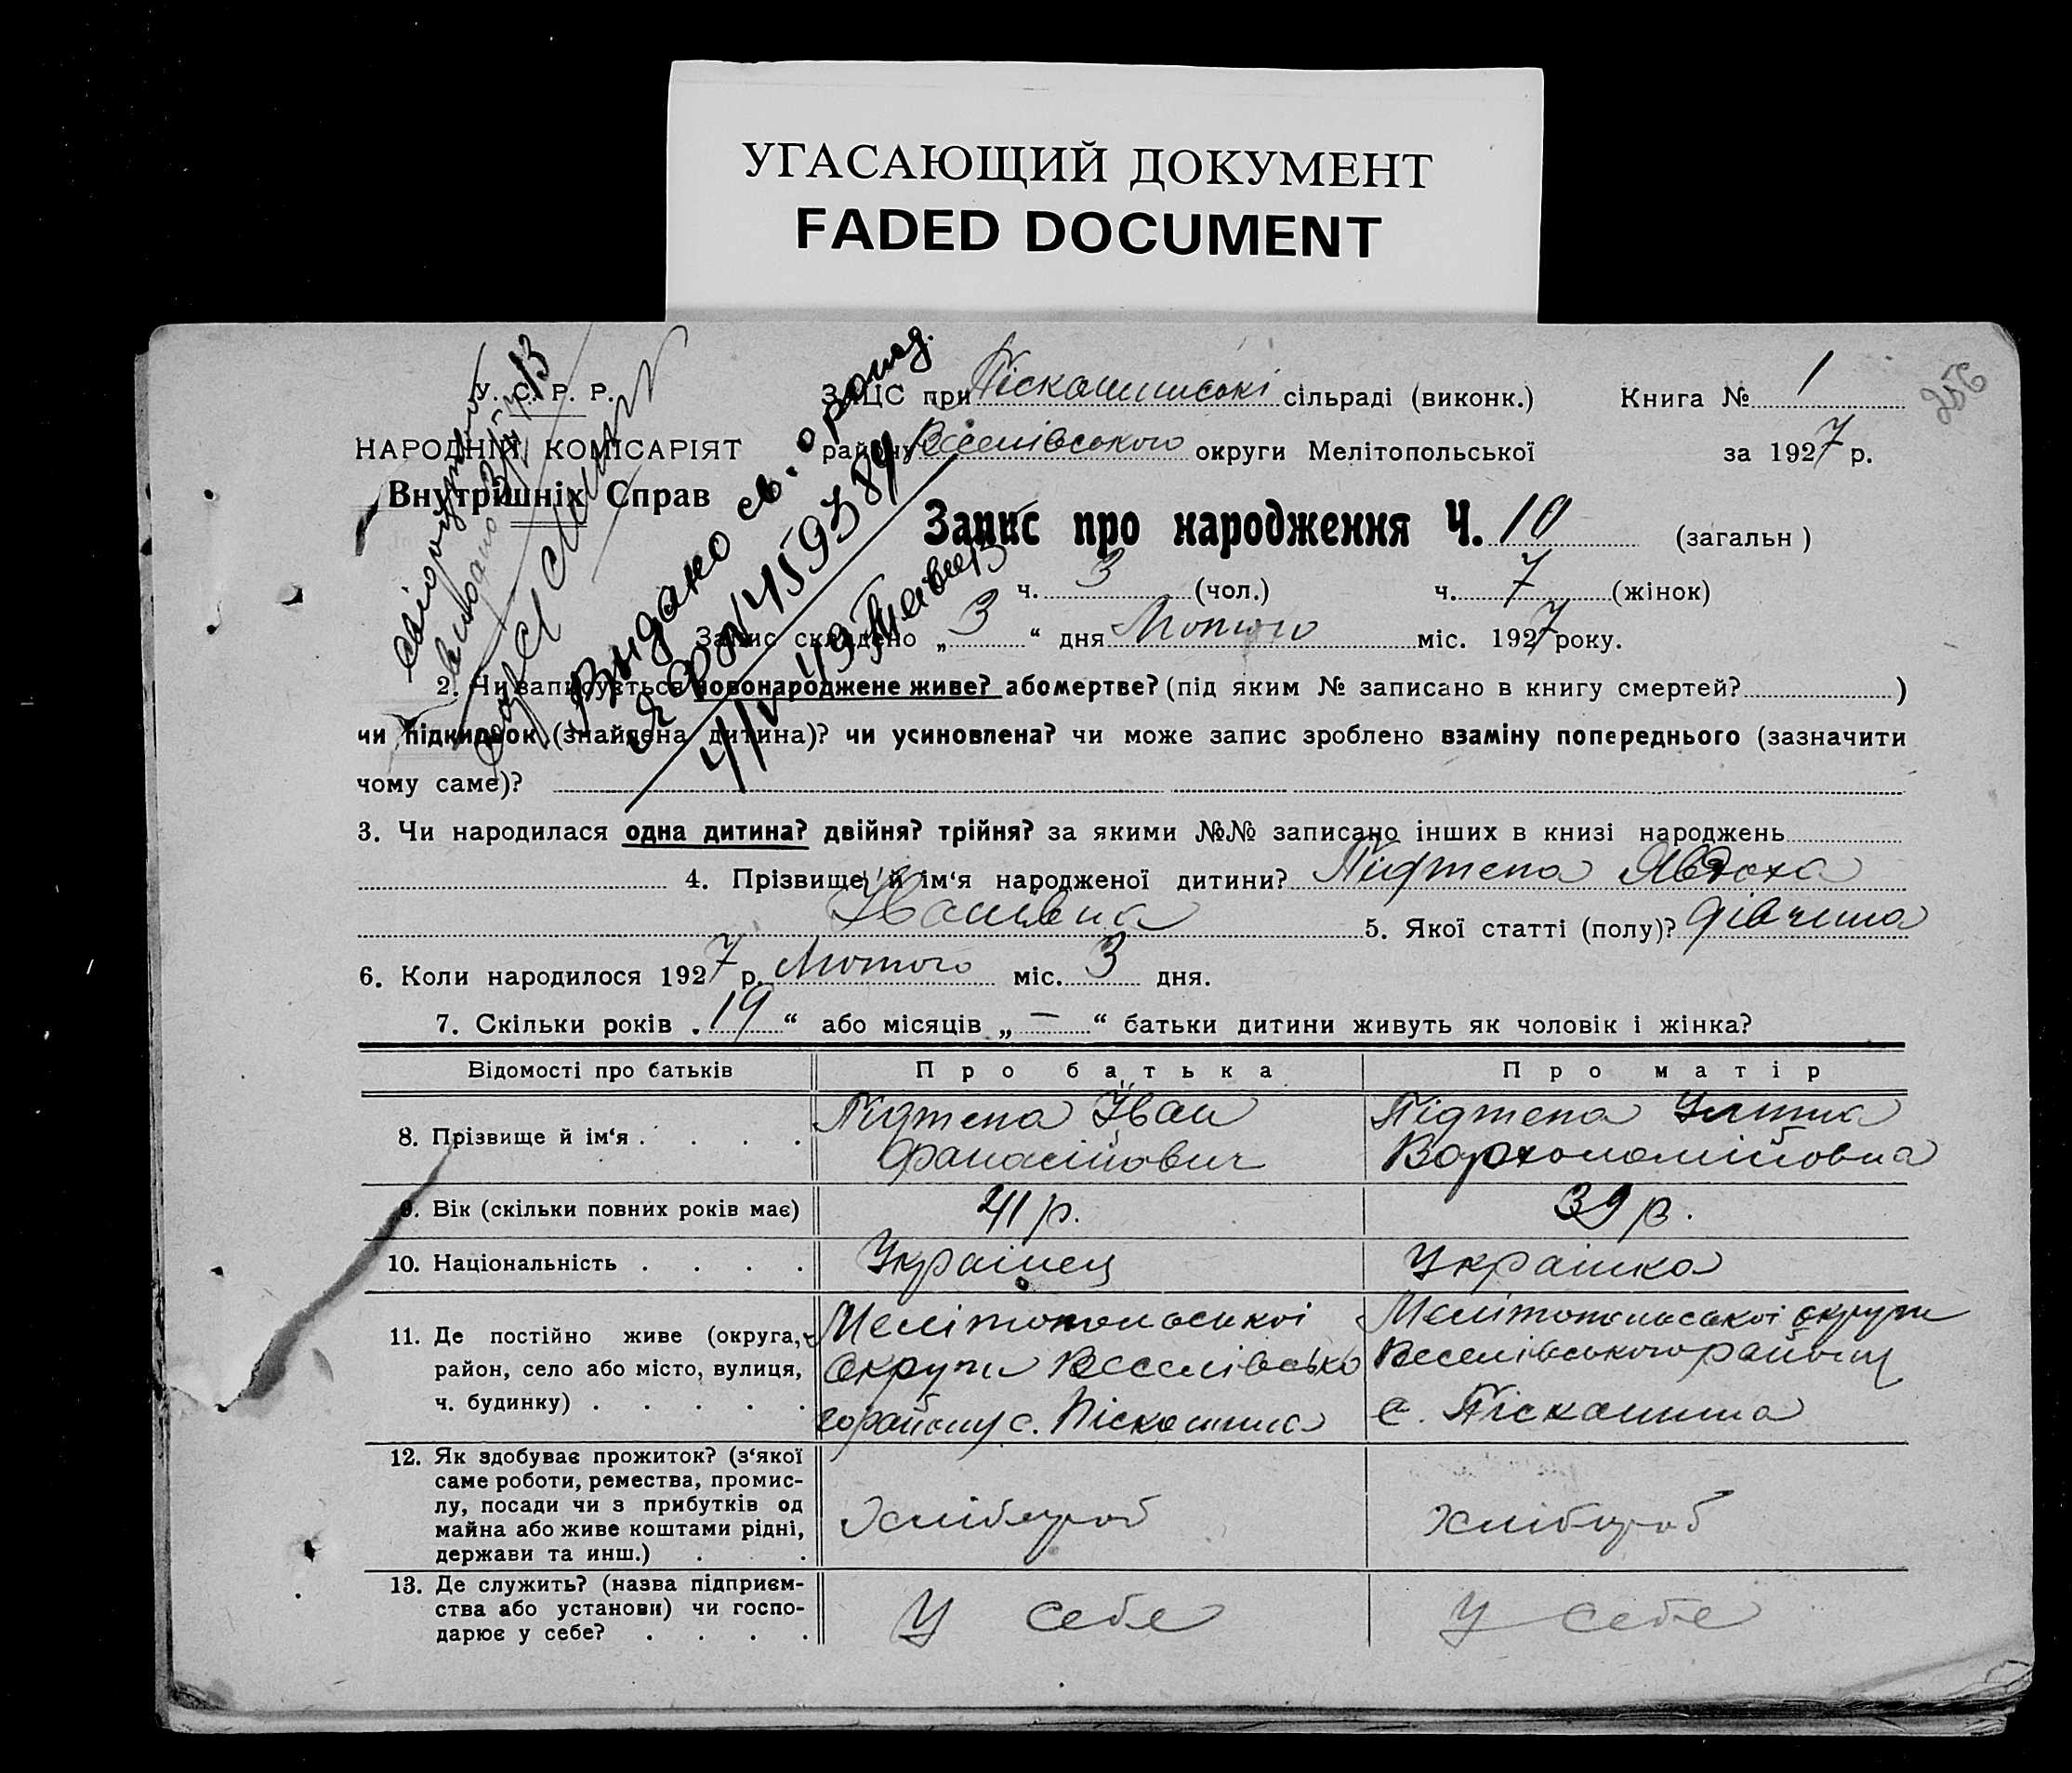 УГАСАЮЩИЙ ДОКУМЕНТ
FADED DOCUMENT
У. С. Р. Р.
НАРОДНІЙ КОМІСАРІЯТ
Внутрішніх Справ
ЗАЦС при Піскошинські сільраді (виконк.) Книга № 1
256
району Веселівського округи Мелітопольської за 1927 р.
Видано св. о рожд.
№ 459384
Запис про народження Ч. 10 (загальн)
ч. 3 (чол.) ч. 7 (жінок)
Запис складено „ 3 “ дня Лютого міс. 1927 року.
2. Чи записується новонароджене живе? або мертве? (під яким № записано в книгу смертей? )
чи підкидьок (знайдена дитина)? чи усиновлена? чи може запис зроблено взаміну попереднього (зазначити
чому саме)?
3. Чи народилася одна дитина? двійня? трійня? за якими №№ записано інших в книзі народжень
4. Прізвище й ім‘я народженої дитини? Підтепа Явдоха
Іванівна 5. Якої статті (полу)? дівчина
6. Коли народилося 1927 р. Лютого міс. 3 дня.
7. Скільки років „ 19 “ або місяців „ — “ батьки дитини живуть як чоловік і жінка?
Відомості про батьків Про батька Про матір
8. Прізвище й ім‘я . . . . Підтепа Іван Підтепа
Фанасійович Вархоломійовна
9. Вік (скільки повних років має) 41 р. 39 р.
10. Національність . . . . Українец Українка
11. Де постійно живе (округа, Мелітопольської Мелітопольської округи
район, село або місто, вулиця, округи Веселівсько Веселівського району
ч. будинку) . . . . . го району с. Піскошина с. Піскошина
12. Як здобуває прожиток? (з‘якої
саме роботи, ремества, промис-
лу, посади чи з прибутків од
майна або живе коштами рідні, Хліборуб Хліборуб
держави та инш.) . .
13. Де служить? (назва підприєм-
ства або установи) чи госпо- У себе У себе
дарює у себе? . . . .